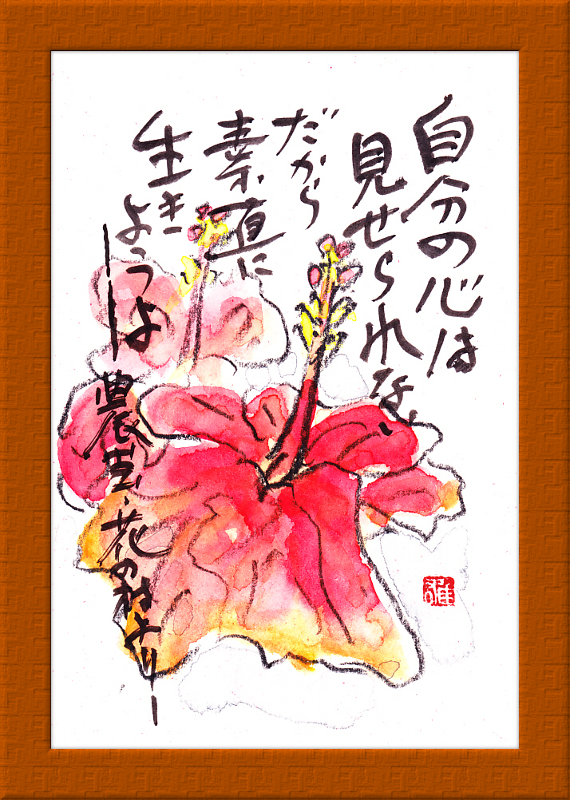 自分の心は
見せられない
だから
素直に
生き
ようよ
農芸・花の村より
雅